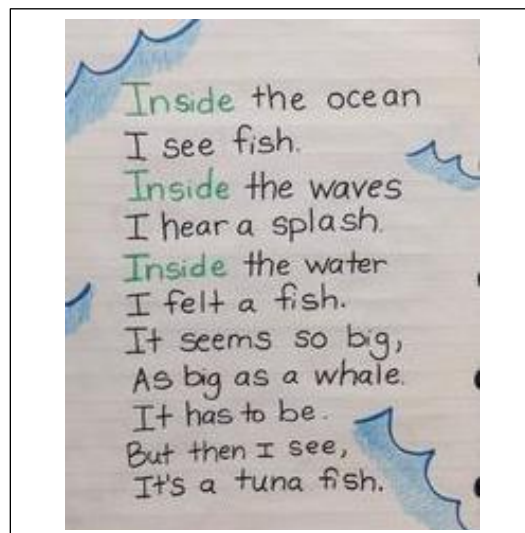 Inside the ocean
I see fish.
Inside the waves
I hear a splash.
Inside the water
I felt a fish.
It seems so big,
As big as a whale.
It has to be.
But then I see,
It's a tuna fish.